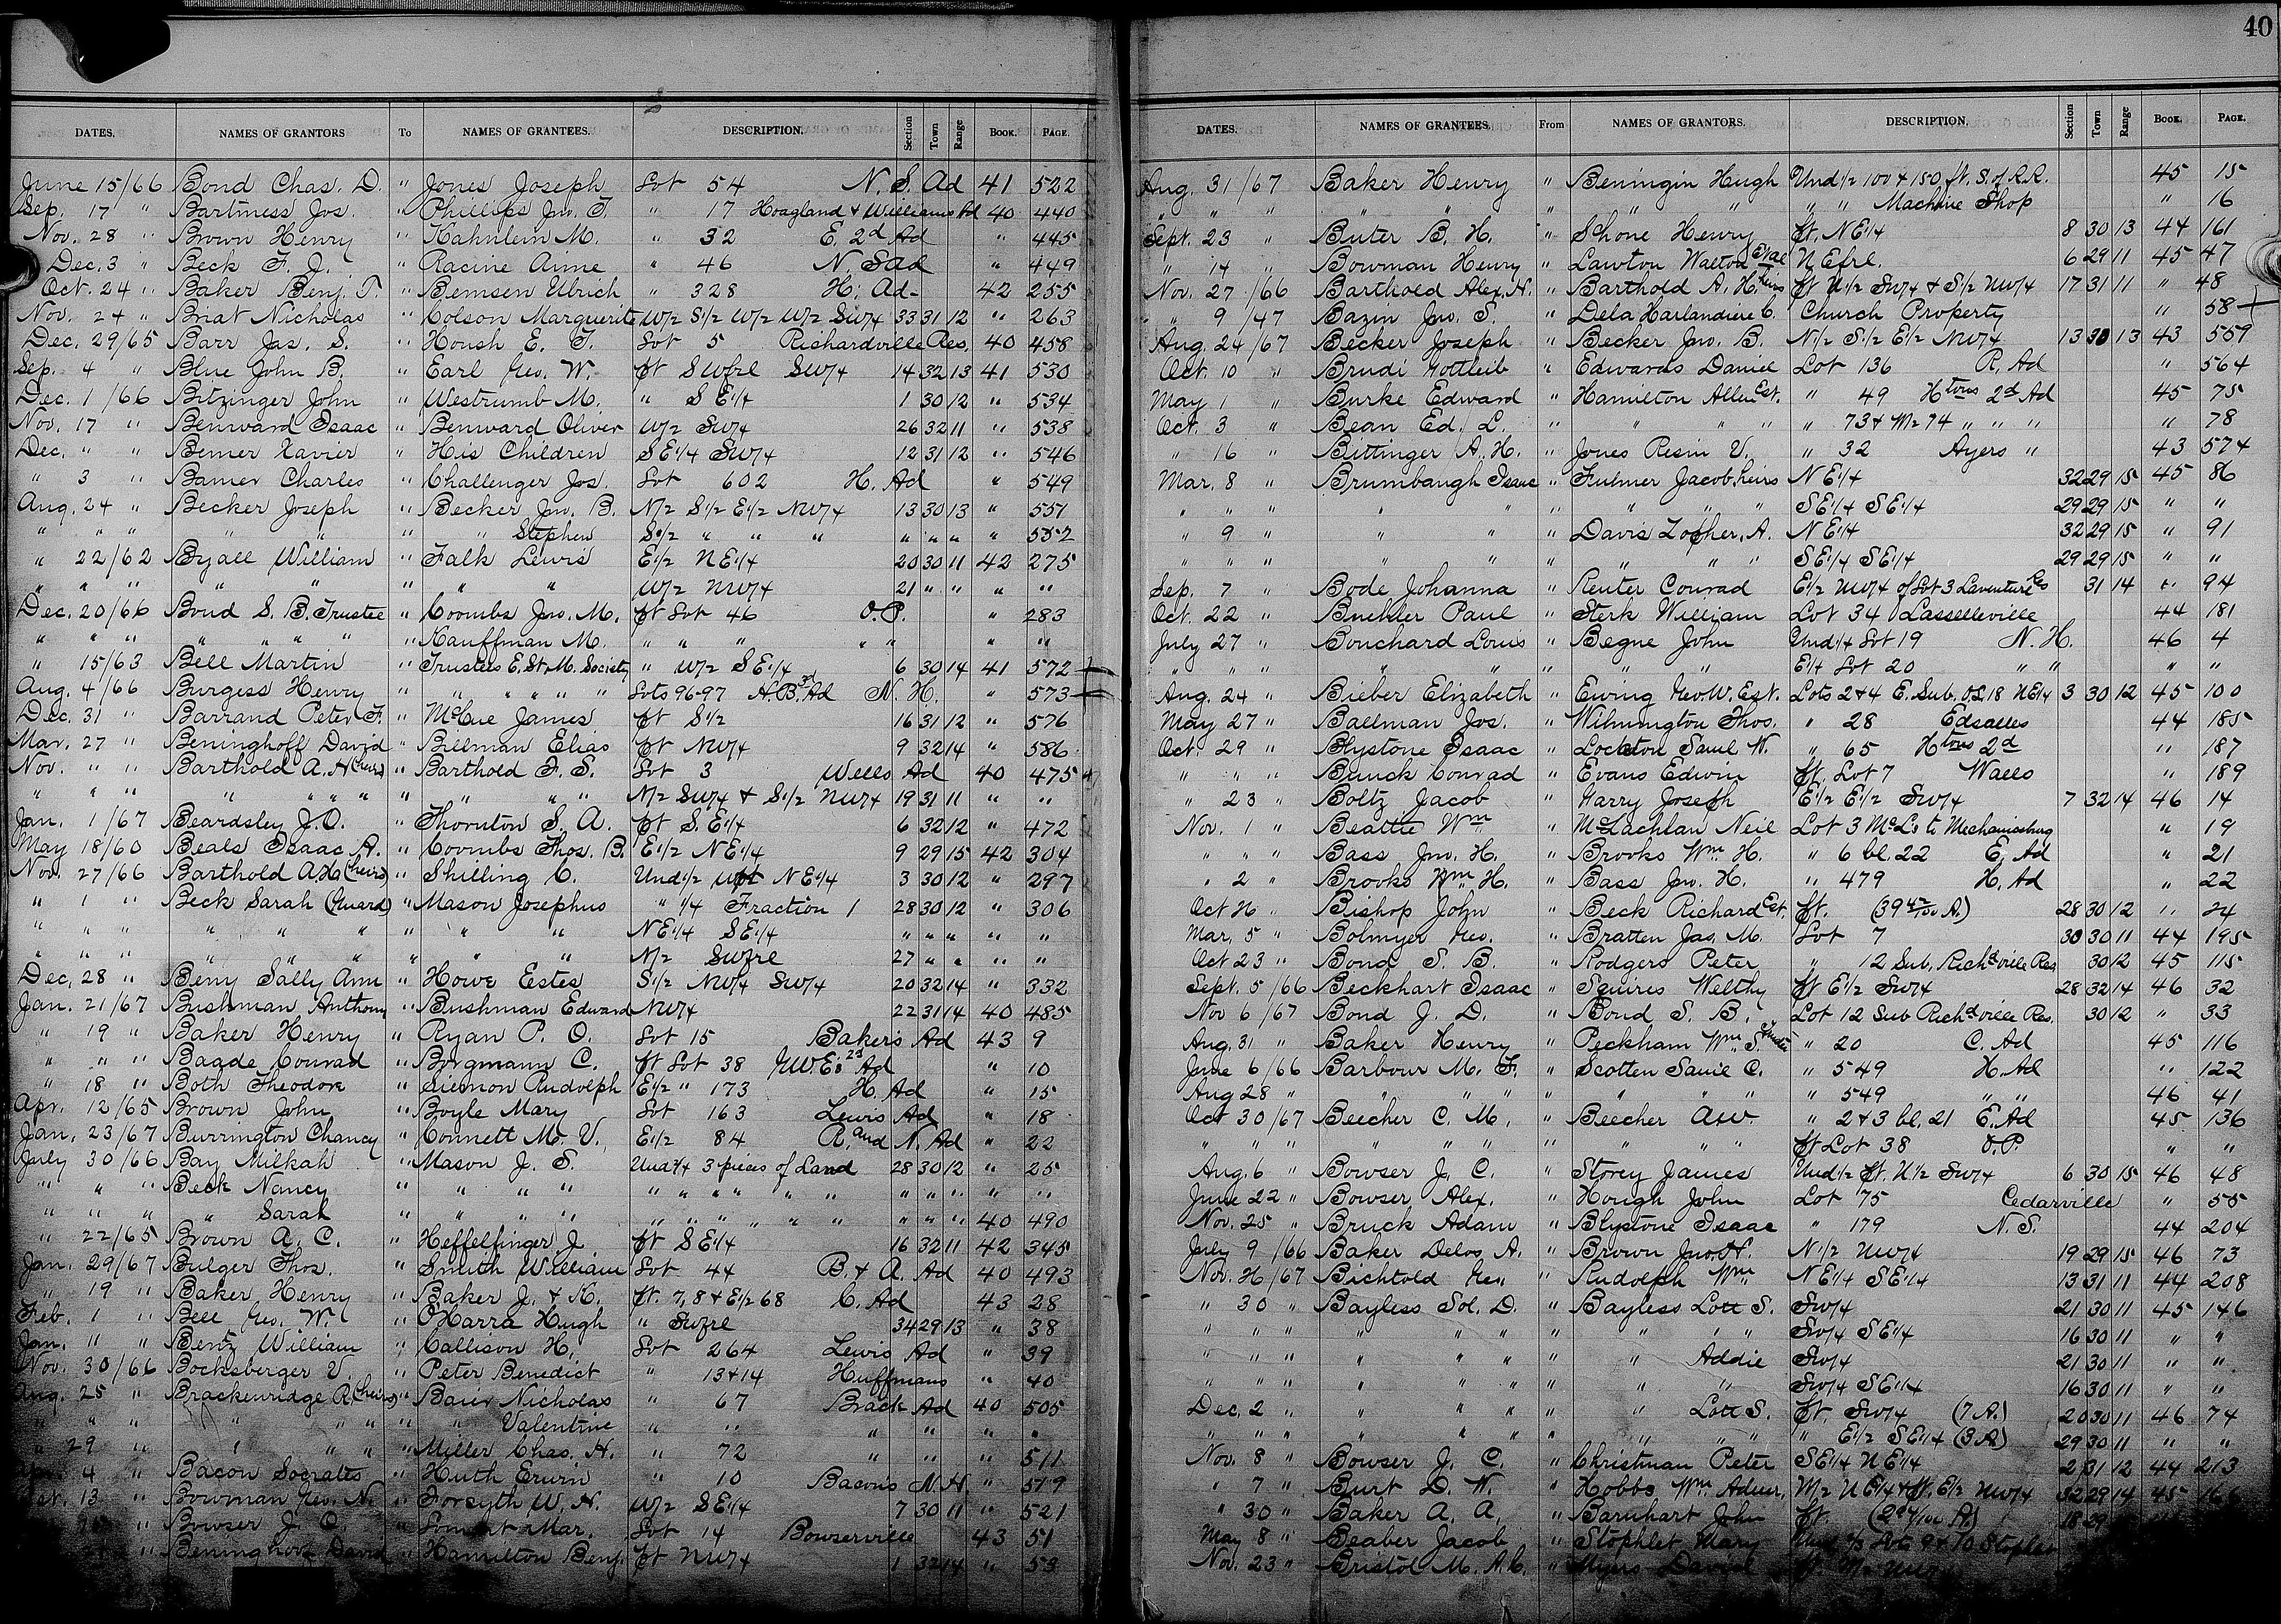 40
DATES. NAMES OF GRANTORS To NAMES OF GRANTEES. DESCRIPTION. Section Town Range Book. Page.
June 15/66 Bond Chas. D. " Jones Joseph Lot 54 N. S. Ad 41 522
Sep. 17 " Bartmess Jos. " Phillips Jno. T. " 17 Hoagland & Williams Ad 40 440
Nov. 28 " Brown Henry " Kahnlein M. " 32 E. 2d Ad " 445
Dec. 3 " Beck F. J. " Racine Aime " 46 N. S Ad " 449
Oct. 24 " Baker Benj. T. " Bemsen Ulrich " 328 H. Ad 42 255
Nov. 24 " Briat Nicholas " Colson Marguerite W/2 S1/2 W/2 W/2 SW/4 33 31 12 " 263
Dec. 29/65 Barr Jas. S. " Housh E. T. Lot 5 Richardville Res. 40 458
Sep. 4 " Blue John B. " Earl Geo. W. pt SWfrl SW/4 14 32 13 41 530
Dec. 1/66 Bitzinger John " Westrumb M. " SE1/4 1 30 12 " 534
Nov. 17 " Benward Isaac " Benward Oliver W/2 SW/4 26 32 11 " 538
Dec. " " Bemer Xavier " His Children SE1/4 SW/4 12 31 12 " 546
" 3 " Bamer Charles " Challenger Jos. Lot 602 H. Ad " 549
Aug. 24 " Becker Joseph " Becker Jno. B. N/2 S1/2 E1/2 NW/4 13 30 13 " 551
" " " " " " " Stephen S1/2 " " " " " " " 552
" 22/62 Byall William " Falk Lewis E1/2 NE1/4 20 30 11 42 275
" " " " " " " " W/2 NW/4 21 " " " "
Dec. 20/66 Bond S. B. Trustee " Coombs Jno. M. pt Lot 46 O.P. " 283
" " " " " " " Kauffman M. " " " " " " "
" 15/63 Bell Martin " Trustees E. St. M. Society " W/2 SE1/4 6 30 14 41 572
Aug. 4/66 Burgess Henry " " " " " " Lots 96-97 H. B. 3d Ad N. H. " 573
Dec. 31 " Barrand Peter F. " McCue James pt S1/2 16 31 12 " 576
Mar. 27 " Beninghoff David " Billman Elias pt NW/4 9 32 14 " 586
Nov. " " Barthold A. H (heirs) " Barthold F. S. Lot 3 Wells Ad 40 475
" " " " " " " " " " N/2 SW/4 & S1/2 NW/4 19 31 11 " "
Jan. 1/67 Beardsley J. O. " Thornton S. A. pt S. E1/4 6 32 12 " 472
May 18/60 Beals Isaac A. " Coombs Thos. B. E1/2 NE1/4 9 29 15 42 304
Nov. 27/66 Barthold A H (heirs) " Shilling C. Und1/2 NE1/4 3 30 12 " 297
" 1 " Beck Sarah (Guard) " Mason Josephus " 1/4 Fraction 1 28 30 12 " 306
" " " " " " " " " NE1/4 SE1/4 " " " " "
" " " " " " " " " N/2 SWfrl 27 " " " "
Dec. 28 " Beny Sally Ann " Howe Estes S1/2 NW/4 SW/4 20 32 14 " 332
Jan. 21/67 Bushman Anthony " Bushman Edward NW/4 22 31 14 40 485
" 19 " Baker Henry " Ryan P. O. Lot 15 Bakers Ad 43 9
" " " Bagde Conrad " Borgmann C. pt Lot 38 JWE's 2d Ad " 10
" 18 " Both Theodore " Siemon Rudolph E1/2 " 173 H. Ad " 15
Apr. 12/65 Brown John " Boyle Mary Lot 163 Lewis Ad " 18
Jan. 23/67 Burrington Chancy " Connett M. V. E1/2 84 R. and N. Ad " 22
July 30/66 Bay Milkah " Mason J. S. Und3/4 3 pieces of Land 28 30 12 " 25
" " " Beck Nancy " " " " " " " " " " " " " " "
" " " " Sarah " " " " " " " " " " " " " 40 490
" 22/65 Brown A. C. " Heffelfinger J. pt SE1/4 16 32 11 42 345
Jan. 29/67 Bulger Thos. " Smith William Lot 44 B. & A. Ad 40 493
" 19 " Baker Henry " Baker J. & K. pt. 7, 8 & E1/2 68 C. Ad 43 28
Feb. 1 " Bell Geo. W. " O'Harra Hugh " SWfrl 34 29 13 " 38
Jan. 11 " Bentz William " Callison H. Lot 264 Lewis Ad " 39
Nov. 30/66 Bocksberger V. " Peter Benedict " 13 & 14 Huffmans " 40
Aug. 25 " Brackenridge R. (heirs) " Baier Nicholas " 67 Brack Ad 40 505
" " " " " " " " Valentine " " " " " "
" 29 " " " " " Miller Chas. H. " 72 " " " 511
4 " Bacon Socrates " Huth Erwin " 10 Bacon's N. H. " 519
13 " Bowman Geo. N. " Forsyth W. H. W/2 SE1/4 7 30 11 " 521
" Bowser J. C. " Mar. Lot 14 Bowserville 43 51
" Beninghoof David " Hamilton Benj. pt NW/4 1 32 14 " 53
DATES. NAMES OF GRANTEES. From NAMES OF GRANTORS. DESCRIPTION. Section Town Range Book. Page.
Aug. 31/67 Baker Henry " Beningin Hugh Und1/2 100 & 150 ft. S. of R.R. 45 15
" " " " " " " " " " Machine Shop " 16
Sept. 23 " Buter B. H. " Schone Henry pt. NE1/4 8 30 13 44 161
" 14 " Bowman Henry " Lawton Walton Etal NEfrl. 6 29 11 45 47
Nov. 27/66 Barthold Alex. H. " Barthold A. H. heirs pt N1/2 SW/4 & S1/2 NW/4 17 31 11 " 48
" 9/47 Bazin Jno. S. " Dela Harlandiere C. Church Property " 58
Aug. 24/67 Becker Joseph " Becker Jno. B. N1/2 S1/2 E1/2 NW/4 13 30 13 43 559
Oct. 10 " Brudi Gottleib " Edwards Daniel Lot 136 R. Ad " 564
May 1 " Burke Edward " Hamilton Allen Est. " 49 Htons 2d Ad 45 75
Oct. 3 " Bean Ed. L. " " " " " 73 & W/2 74 " " " " 78
" 16 " Bittinger A. H. " Jones Resin V. " 32 Ayers " 43 574
Mar. 8 " Brumbaugh Isaac " Fulmer Jacob heirs NE1/4 32 29 15 45 86
" " " " " " " " " SE1/4 SE1/4 29 29 15 " "
" 9 " " " " Davis Zopher A. NE1/4 32 29 15 " 91
" " " " " " " " " SE1/4 SE1/4 29 29 15 " "
Sep. 7 " Bode Johanna " Reuter Conrad E1/2 NW/4 of Lot 3 Laventure Res 31 14 " 94
Oct. 22 " Buehler Paul " Sterk William Lot 34 Lasselleville 44 181
July 27 " Bouchard Louis " Begue John Und1/4 Lot 19 N. H. 46 4
" " " " " " " " E1/4 Lot 20 " " " "
Aug. 24 " Bieber Elizabeth " Ewing Geo. W. Est. Lots 2 & 4 E. Sub. O.L. 18 NE1/4 3 30 12 45 100
May 27 " Ballman Jos. " Wilmington Thos. " 28 Edsalles 44 185
Oct 29 " Blystone Isaac " Lockton Saml W. " 65 Htons 2d " 187
" " " Bunck Conrad " Evans Edwin pt. Lot 7 Walls " 189
" 23 " Boltz Jacob " Harry Joseph E1/2 E1/2 SW/4 7 32 14 46 14
Nov. 1 " Beattie Wm " McLachlan Neil Lot 3 McLs to Mechanicsburg " 19
" " " Bass Jno. H. " Brooks Wm. H. " 6 bl. 22 E. Ad " 21
" 2 " Brooks Wm H. " Bass Jno. H. " 479 H. Ad " 22
Oct " Bishop John " Beck Richard Est. pt. 28 30 12 " 24
Mar. 5 " Bolmyer Geo. " Bratten Jas. M. Lot 7 30 30 11 44 195
Oct 23 " Bond S. B. " Rodgers Peter " 12 Sub. Richdville Res 30 12 45 115
Sept. 5/66 Beckhart Isaac " Squires Welthy pt E1/2 SW/4 28 32 14 46 32
Nov 6/67 Bond J. D. " Bond S. B. Lot 12 Sub Richdville Res. 30 12 " 33
Aug. 31 " Baker Henry " Peckham Wm S. " 20 C. Ad 45 116
June 6/66 Barbour M. F. " Scotten Saml C. " 549 H. Ad " 122
Aug 28 " " " " " " " " " 549 " " 46 41
Oct 30/67 Beecher C. M. " Beecher A.W. " 2 & 3 bl. 21 E. Ad 45 136
" " " " " " " " " " pt Lot 38 O.P. " "
Aug. 6 " Bowser J. C. " Storey James Und1/2 pt. N1/2 SW/4 6 30 15 46 48
June 22 " Bowser Alex. " Hough John Lot 75 Cedarville " 55
Nov. 25 " Bruck Adam " Blystone Isaac " 179 N. S. 44 204
July 9/66 Baker Delos A. " Brown Jno. N1/2 NW/4 19 29 15 46 73
Nov. /67 Bichtold Geo. " Rudolph Wm NE1/4 SE1/4 13 31 11 44 208
" 30 " Bayless Sol. D. " Bayless Lott S. SW/4 21 30 11 45 146
" " " " " " " " " " SW/4 SE1/4 16 30 11 " "
" " " " " " " " Addie SW/4 21 30 11 " "
" " " " " " " " " SW/4 SE1/4 16 30 11 " "
Dec. 2 " " " " " " Lott S. pt. SW/4 (7 A.) 20 30 11 46 74
" " " " " " " " " " " E1/2 SE1/4 (3 A) 29 30 11 " "
Nov. 8 " Bowser J. C. " Christman Peter SE1/4 NE1/4 2 31 12 44 213
" 7 " Burt D. W. " Hobbs Wm. W/2 NE1/4 & E1/2 NW/4 32 29 14 45
" 30 " Baker A. A. " Barnhart John pt. 18 29
May 8 " Beaber Jacob " Stophlet Mary 9 & 10
Nov. 23 " Bristol M. A. C. " Myers David